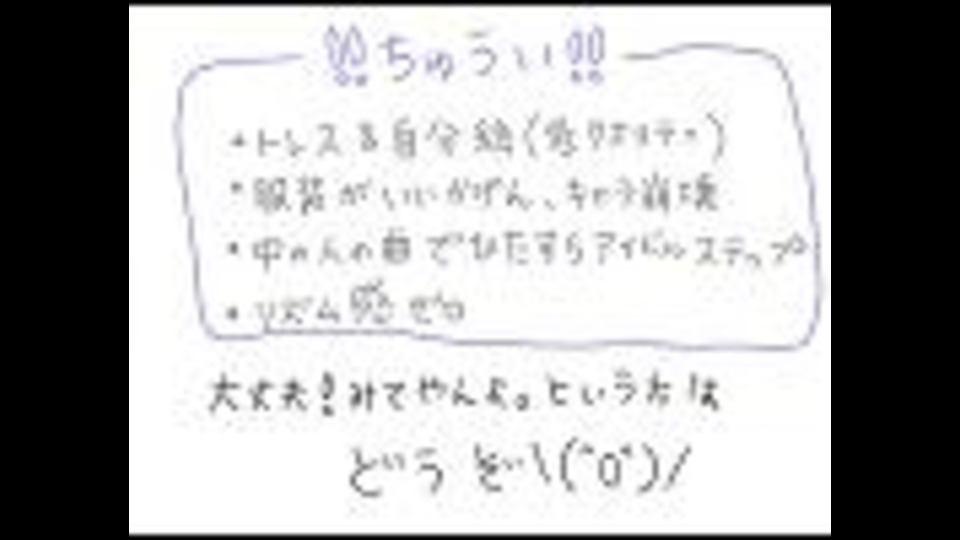 !!ちゅうい!!
・トレス&自分絵(低クオリティ)
・服装がいいかげん、キャラ崩壊
・中の人の曲でひたすらアイドルステップ
・リズム感ゼロ
大丈夫!みてやんよ。という方は
どうぞ\(^0^)/